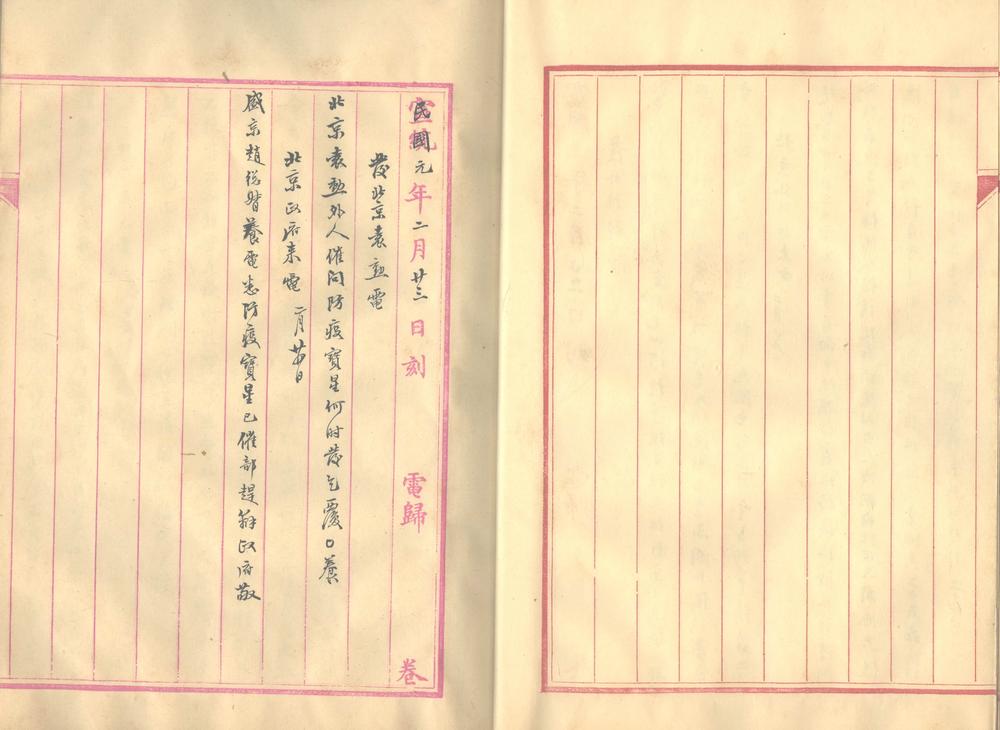 民國元年二月廿三日刻 電歸 卷
發北京袁 電
北京袁 外人催問防疫寶星何時發乞覆○養
北京政府來電 二月廿 日
盛京趙總督養電悉防疫寶星已催部趕辦政府敬